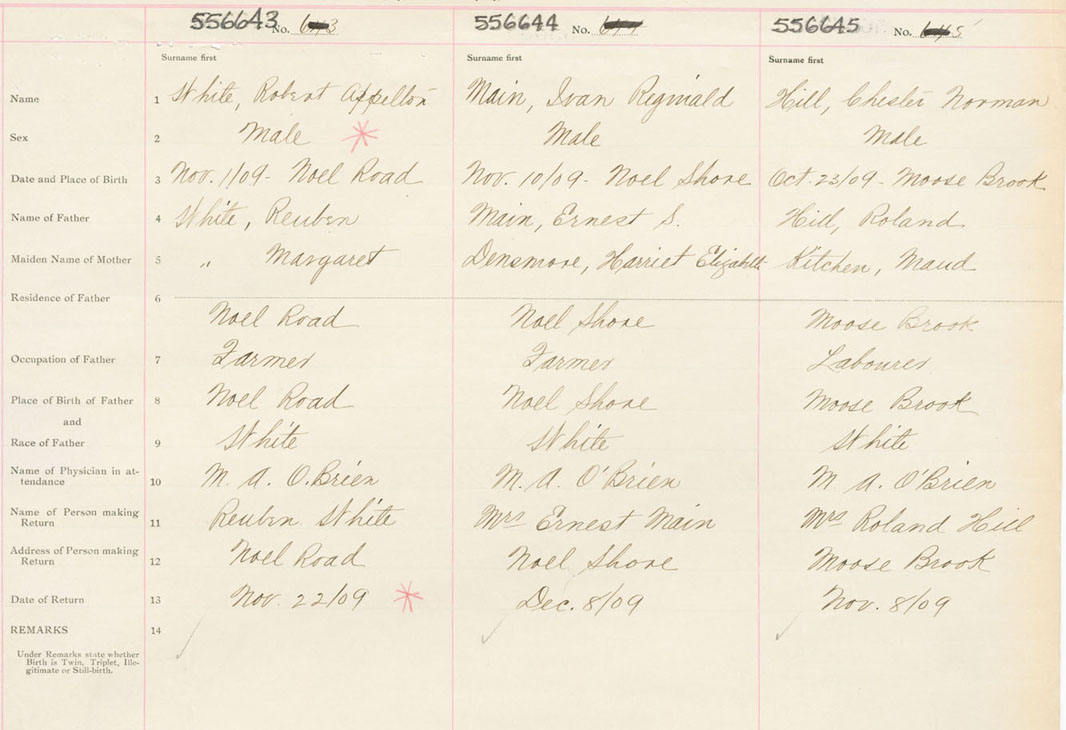 556643 No. 643 556644 No. 644 556645 No. 645
Surname first Surname first Surname first
Name 1 White, Robert Appelton Main, Ivan Reginald Hill, Chester Norman
Sex 2 Male * Male Male
Date and Place of Birth 3 Nov. 1/09 - Noel Road Nov. 10/09 - Noel Shore Oct. 23/09 - Moose Brook
Name of Father 4 White, Reuben Main, Ernest S. Hill, Roland
Maiden Name of Mother 5 " Margaret Densmore, Harriet Elizabeth Kitchen, Maud
Residence of Father 6
Noel Road Noel Shore Moose Brook
Occupation of Father 7 Farmer Farmer Labourer
Place of Birth of Father 8 Noel Road Noel Shore Moose Brook
and
Race of Father 9 White White White
Name of Physician in at-
tendance 10 M. A. O.Brien M. A. O'Brien M A. O'Brien
Name of Person making
Return 11 Reuben White Mrs Ernest Main Mrs Roland Hill
Address of Person making
Return 12 Noel Road Noel Shore Moose Brook
Date of Return 13 Nov. 22/09 * Dec. 8/09 Nov. 8/09
REMARKS 14
Under Remarks state whether
Birth is Twin, Triplet, Ille-
gitimate or Still-birth.